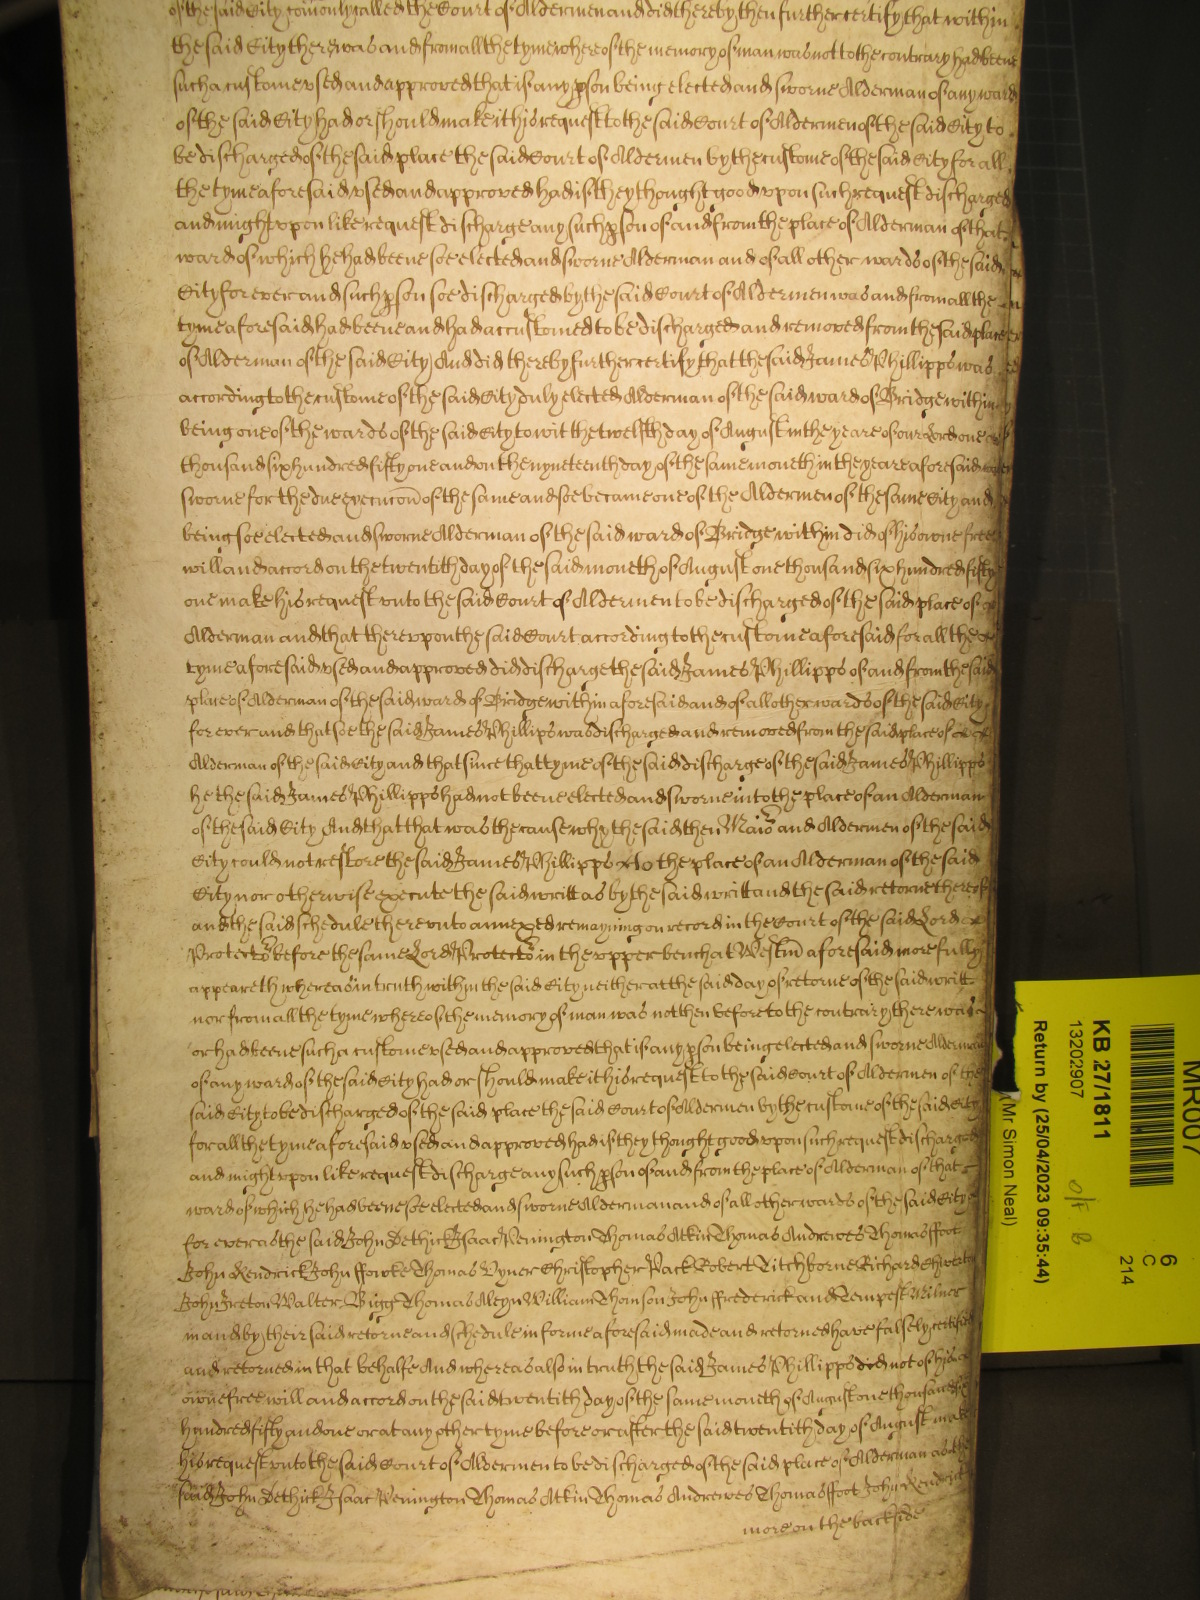 of the said City comonly called the Court of Aldermen and did thereby then further certify that within
the said City there was and from all the tyme whereof the memory of man was not to the contrary had beene
such a custome vsed and approved that if any pson being elected and sworne Alderman of any ward
of the said City had or should make it his request to the said Court of Aldermen of the said City to
be discharged of the said place the said Court of Aldermen by the custome of the said City for all
the tyme aforesaid vsed and approved had if they thought good vpon such request discharged
and might vpon like request discharge any such pson of and from the place of Alderman of that
ward of which he had beene soe elected and sworne Alderman and of all other wards of the said
City for ever and such pson soe discharged by the said Court of Aldermen was and from all the
tyme aforesaid had beene and had accustomed to be discharged and removed from the said place
of Alderman of the said City And did thereby further certify that the said James Phillipps was
according to the custome of the said City duly elected Alderman of the said ward of Bridge within
being one of the wards of the said City to wit the twelfth day of August in the yeare of our Lord one
thousand six hundred fifty one and on the nyneteenth day of the same moneth in the yeare aforesaid
sworne for the due execucon of the same and soe became one of the Aldermen of the same City and
being soe elected and sworne Alderman of the said ward of Bridge within did of his owne free
will and accord on the twentith day of the said moneth of August one thousand six hundred fifty
one make his request vnto the said Court of Aldermen to be discharged of the said place of
Alderman and that therevpon the said Court according to the custome aforesaid for all the
tyme aforesaid vsed and approved did discharge the said James Phillipps of and from the said
place of Alderman of the said ward of Bridge within aforesaid and of all other wards of the said City
for ever and that soe the said James Phillips was discharged and removed from the said place of
Alderman of the said City and that since that tyme of the said discharge of the said James Phillipps
he the said James Phillipps had not beene elected and sworne into the place of an Alderman
of the said City And that that was the cause why the said then Maior and Aldermen of the said
City could not restore the said James Phillipps to the place of an Alderman of the said
City nor otherwise execute the said writt as by the said writt and the said retorne thereof
and the said schedule therevnto annexed remayning on record in the Court of the said Lord
Protector before the same Lord Protector in the vpper bench at Westm aforesaid more fully
appeareth whereas in truth within the said City neither at the said day of retorne of the said writt
nor from all the tyme whereof the memory of man was not then before to the contrary there was
or had beene such a custome vsed and approved that if any pson being elected and sworne Alderman
of any ward of the said City had or should make it his request to the said Court of Aldermen of the
said City to be discharged of the said place the said Court of Aldermen by the custome of the said City
for all the tyme aforesaid vsed and approved had if they thought good vpon such request discharged
and might vpon like request discharge any such pson of and from the place of Alderman of that
ward of which he had beene soe elected and sworne Alderman and of all other wards of the said City
for ever as the said John Dethick Isaac Penington Thomas Atkin Thomas Andrewes Thomas ffoot
John Kendrick John ffowke Thomas Vyner Christopher Pack Robert Titchborne Richard Chiverton
John Ireton Walter Bigg Thomas Aleyn William Thomson John ffrederick and Tempest Milner
in and by their said retorne and schedule in forme aforesaid made and retorned have falsely certified
and retorned in that behalfe And whereas also in truth the said James Phillipps did not of his
owne free will and accord on the said twentith day of the same moneth of August one thousand six
hundred fifty and one or at any other tyme before or after the said twentith day of August make
his request vnto the said Court of Aldermen to be discharged of the said place of Alderman as the
said John Dethick Isaac Penington Thomas Atkin Thomas Andrewes Thomas ffoot John Kendrick
more on the backside
MR007
6
C
214
KB 27/1811
13202907
Return by (25/04/2023 09:35:44)
(Mr Simon Neal)